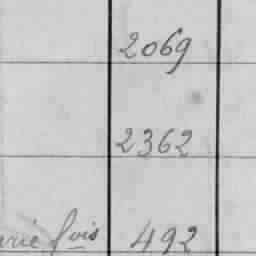 2069
2362
arie fois 492